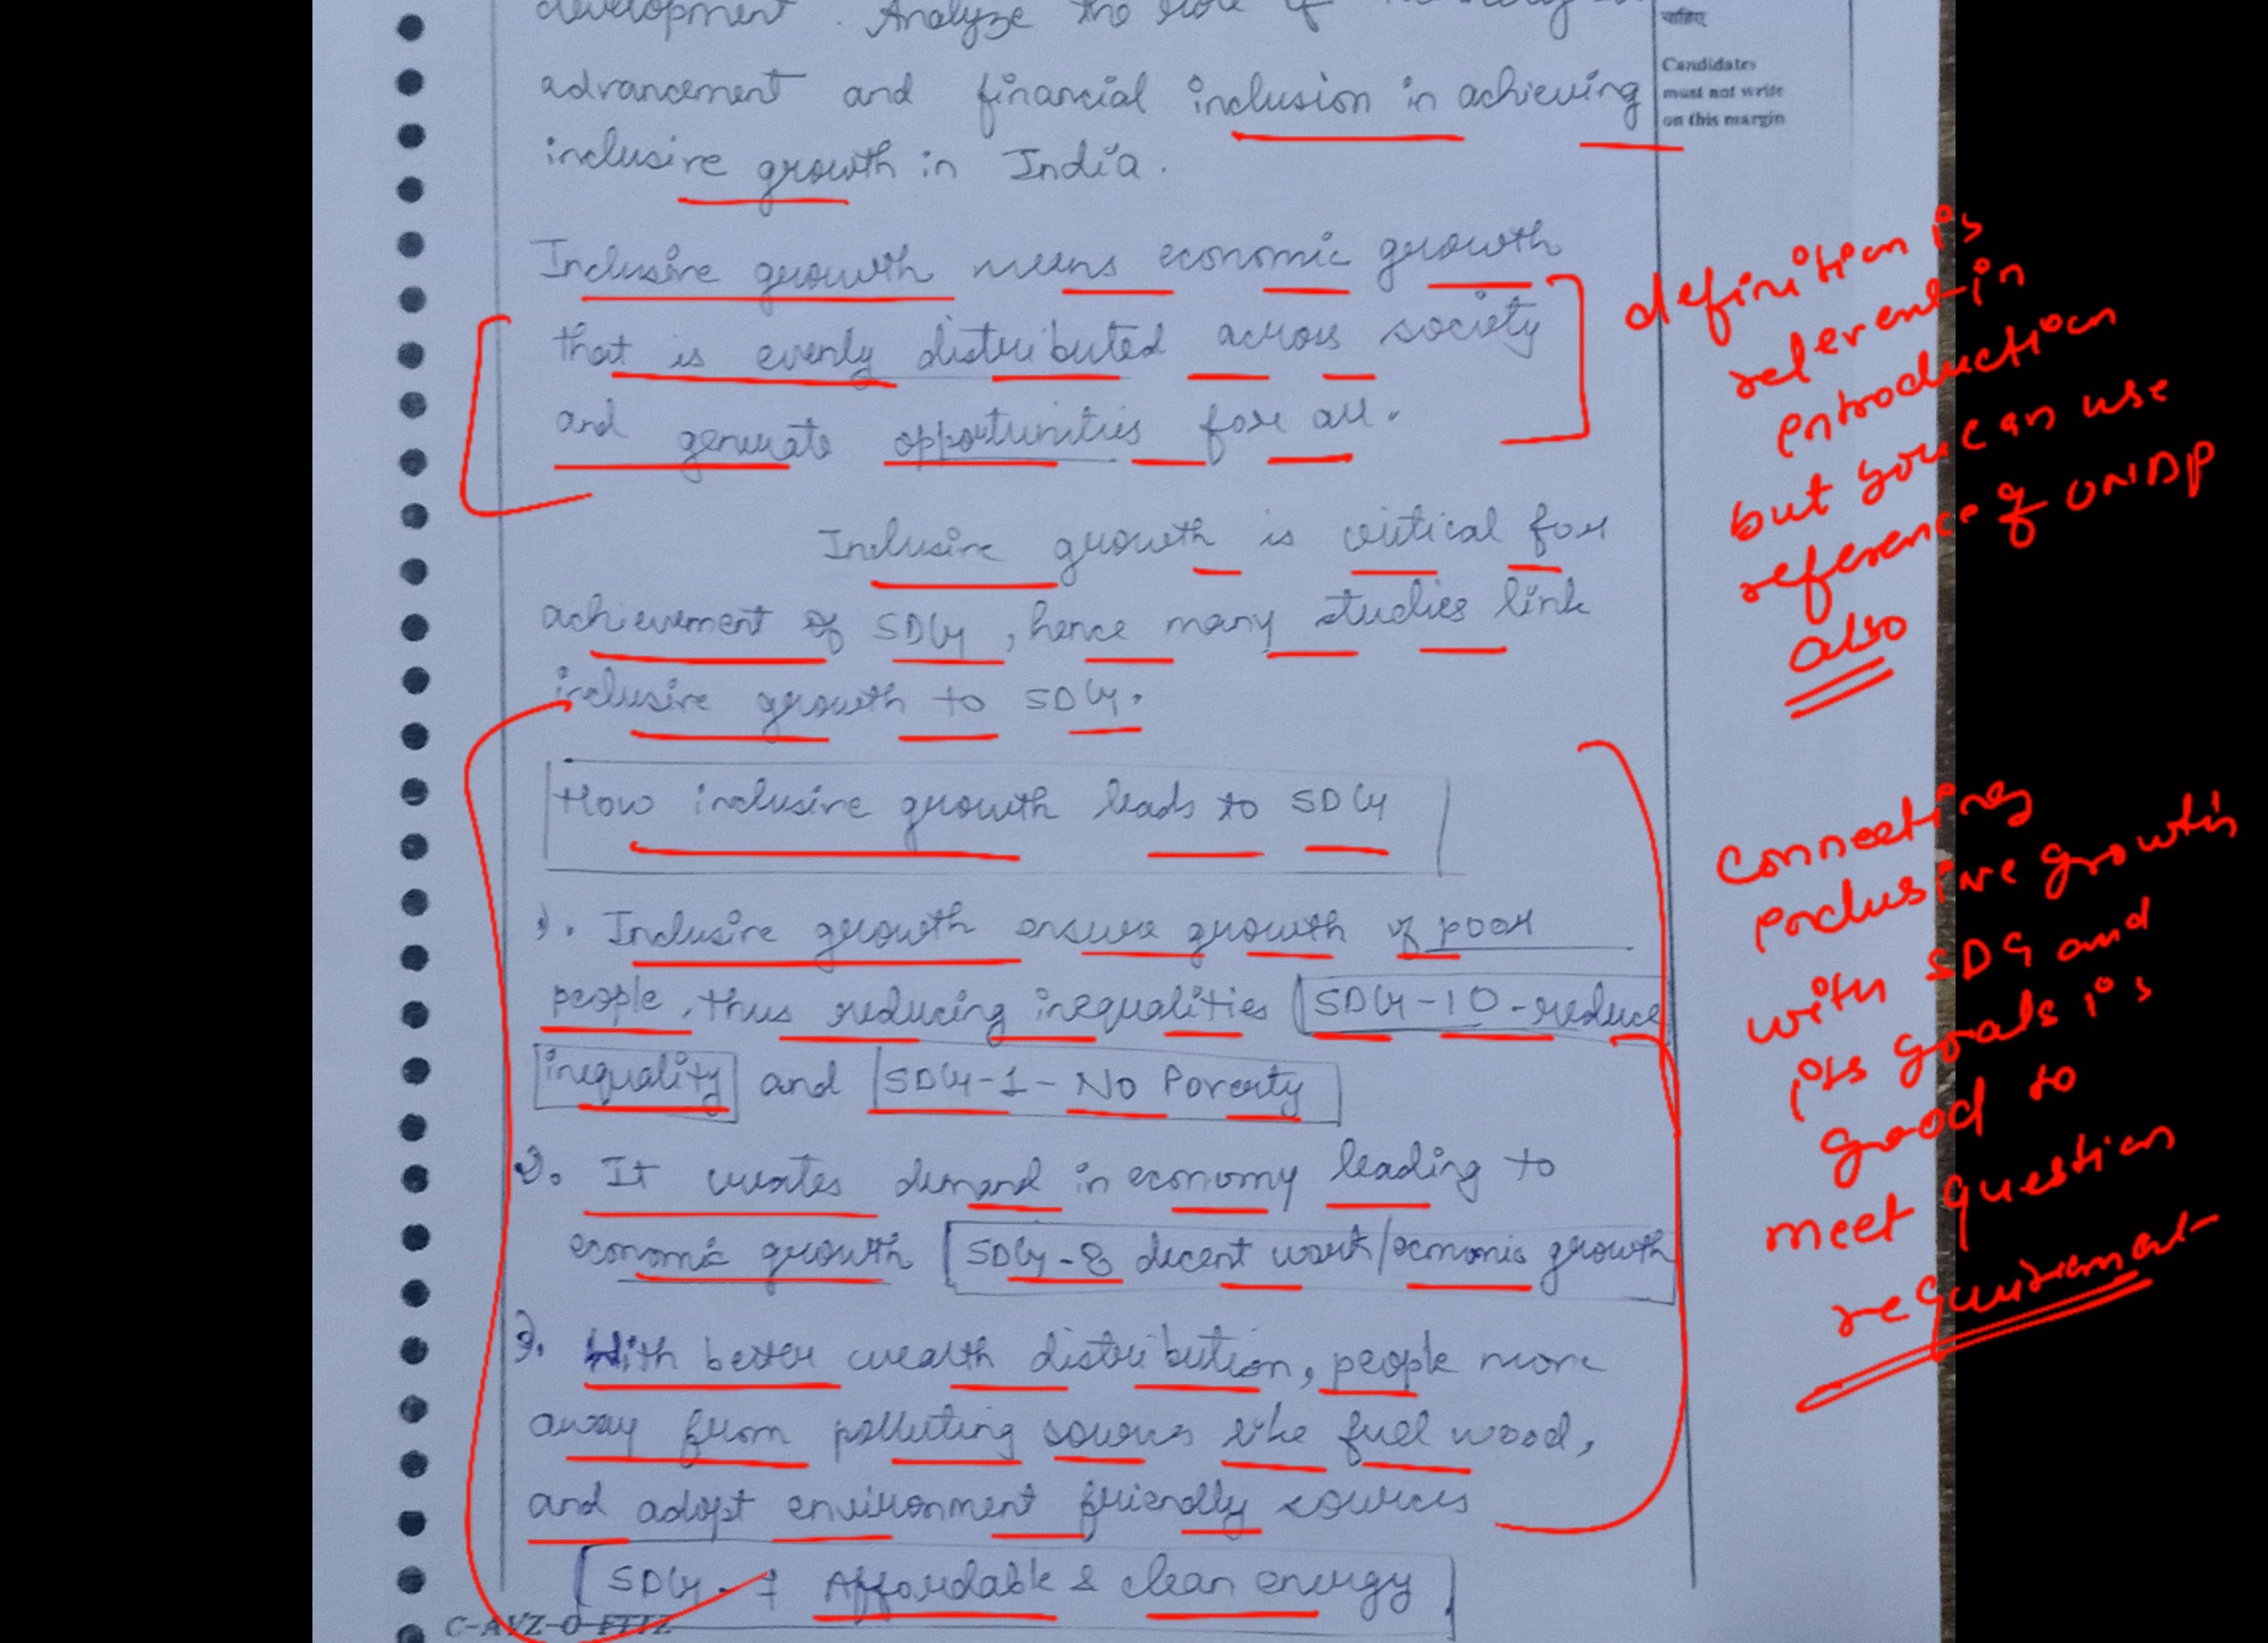 development. Analyze the role of
advancement and financial inclusion in achieving
inclusive growth in India.
चाहिए
Candidates
must not write
on this margin
Inclusive growth means economic growth
that is evenly distributed across society
and generate opportunities for all.
definition is
relevent in
introduction
but you can use
reference of UNDP
also
Inclusive growth is critical for
achievement of SDG, hence many studies link
inclusive growth to SDG.
How inclusive growth leads to SDG
1). Inclusive growth ensure growth of poor
people, thus reducing inequalities SDG-10-reduce
inequality and SDG-1-No Poverty
2). It creates demand in economy leading to
economic growth SDG-8 decent work/economic growth
3). With better wealth distribution, people move
away from polluting sources like fuel wood,
and adopt environment friendly sources
SDG-7 Affordable & clean energy
connecting
inclusive growth
with SDG and
its goals is
good to
meet question
requirement
C-AVZ-O-FTTZ